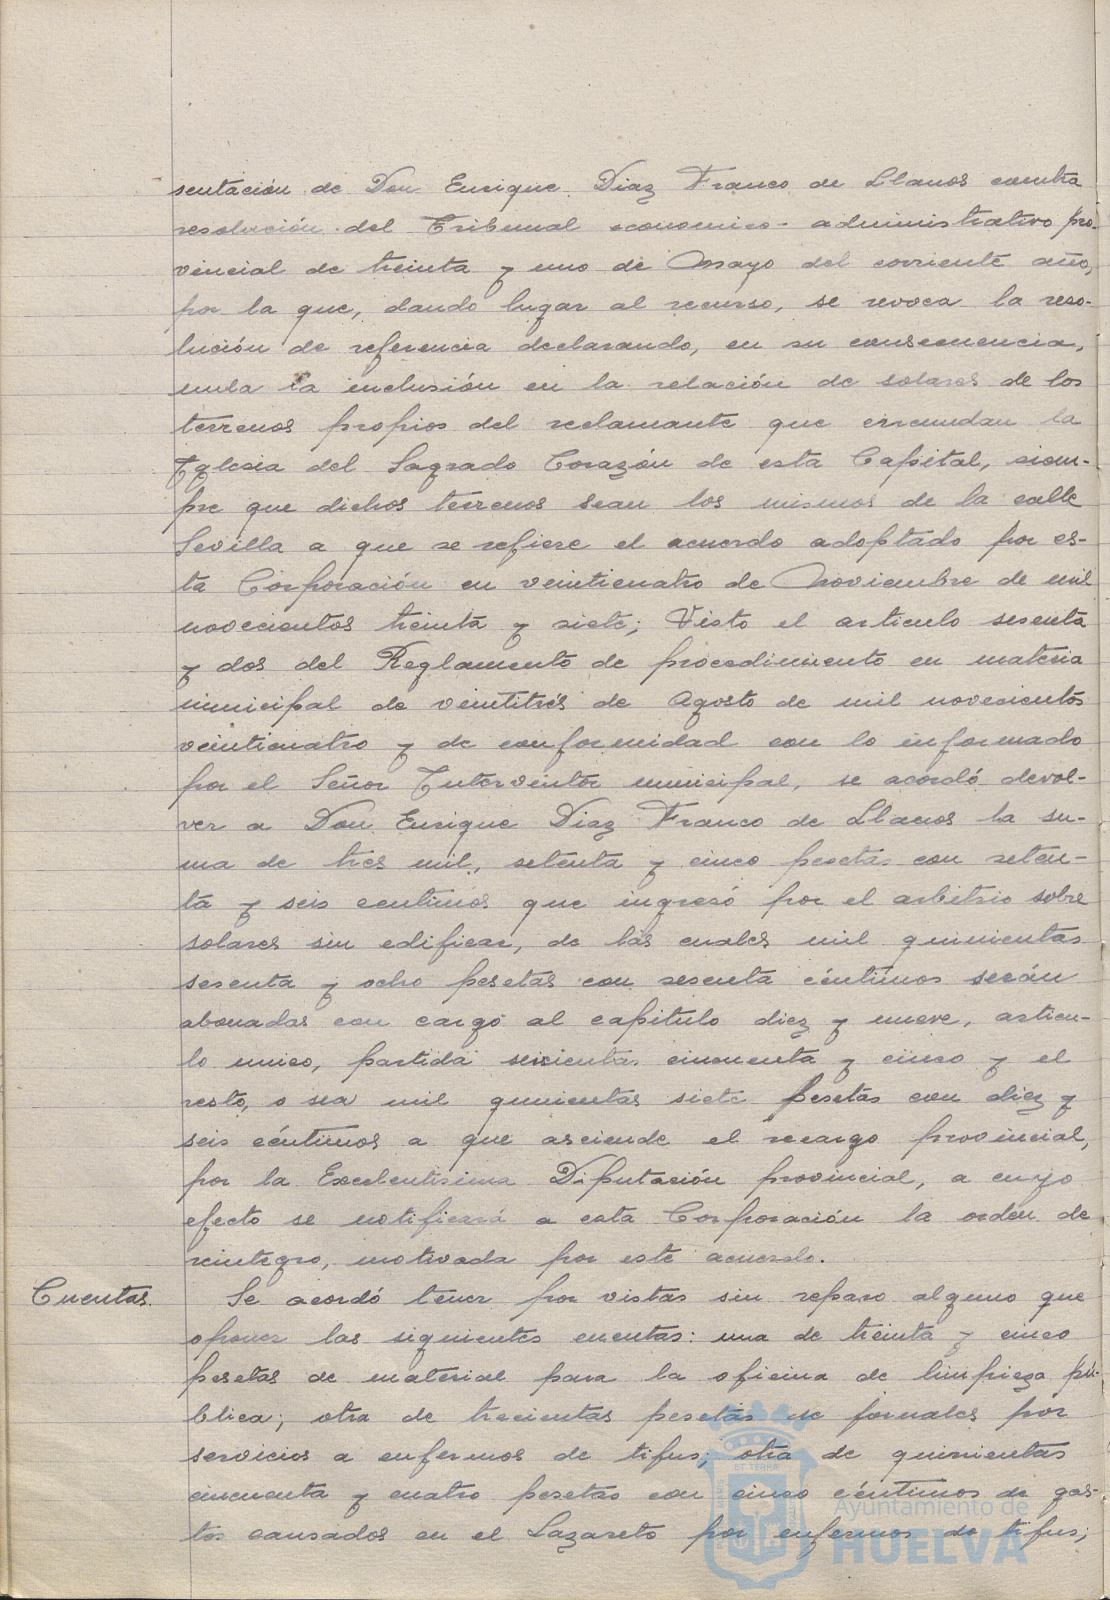 sentación de Don Enrique Diaz Franco de Llanos contra
resolución del Tribunal economico-administrativo pro-
vincial de treinta y uno de Mayo del corriente año,
por la que, dando lugar al recurso, se revoca la reso-
lución de referencia declarando, en su consecuencia,
nula la inclusión en la relación de solares de los
terrenos propios del reclamante que circundan la
Iglesia del Sagrado Corazón de esta Capital, siem-
pre que dichos terrenos sean los mismos de la calle
Sevilla a que se refiere el acuerdo adoptado por es-
ta Corporación en veinticuatro de Noviembre de mil
novecientos treinta y siete; Visto el articulo sesenta
y dos del Reglamento de procedimiento en materia
municipal de veintitrés de Agosto de mil novecientos
veinticuatro y de conformidad con lo informado
por el Señor Interventor municipal, se acordó devol-
ver a Don Enrique Diaz Franco de Llanos la su-
ma de tres mil, setenta y cinco pesetas con seten-
ta y seis centimos que ingresó por el arbitrio sobre
solares sin edificar, de las cuales mil quinientas
sesenta y ocho pesetas con sesenta céntimos serán
abonadas con cargo al capitulo diez y nueve, articu-
lo unico, partida seiscientas cincuenta y cinco y el
resto, o sea mil quinientas siete pesetas con diez y
seis céntimos a que asciende el recargo provincial,
por la Excelentisima Diputación provincial, a cuyo
efecto se notificará a esta Corporación la orden de
reintegro, motivada por este acuerdo.
Cuentas. Se acordó tener por vistas sin reparo alguno que
oponer las siguientes cuentas: una de treinta y cinco
pesetas de material para la oficina de limpieza pú-
blica; otra de trecientas pesetas de jornales por
servicios a enfermos de tifus; otra de quinientas
cincuenta y cuatro pesetas con cinco céntimos de gas-
tos causados en el Lazareto por enfermos de tifus;
Ayuntamiento de
HUELVA